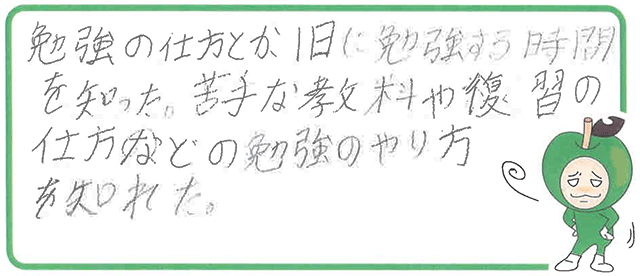 勉強の仕方とか1日に勉強する時間
を知った。苦手な教科や復習の
仕方などの勉強のやり方
を知れた。